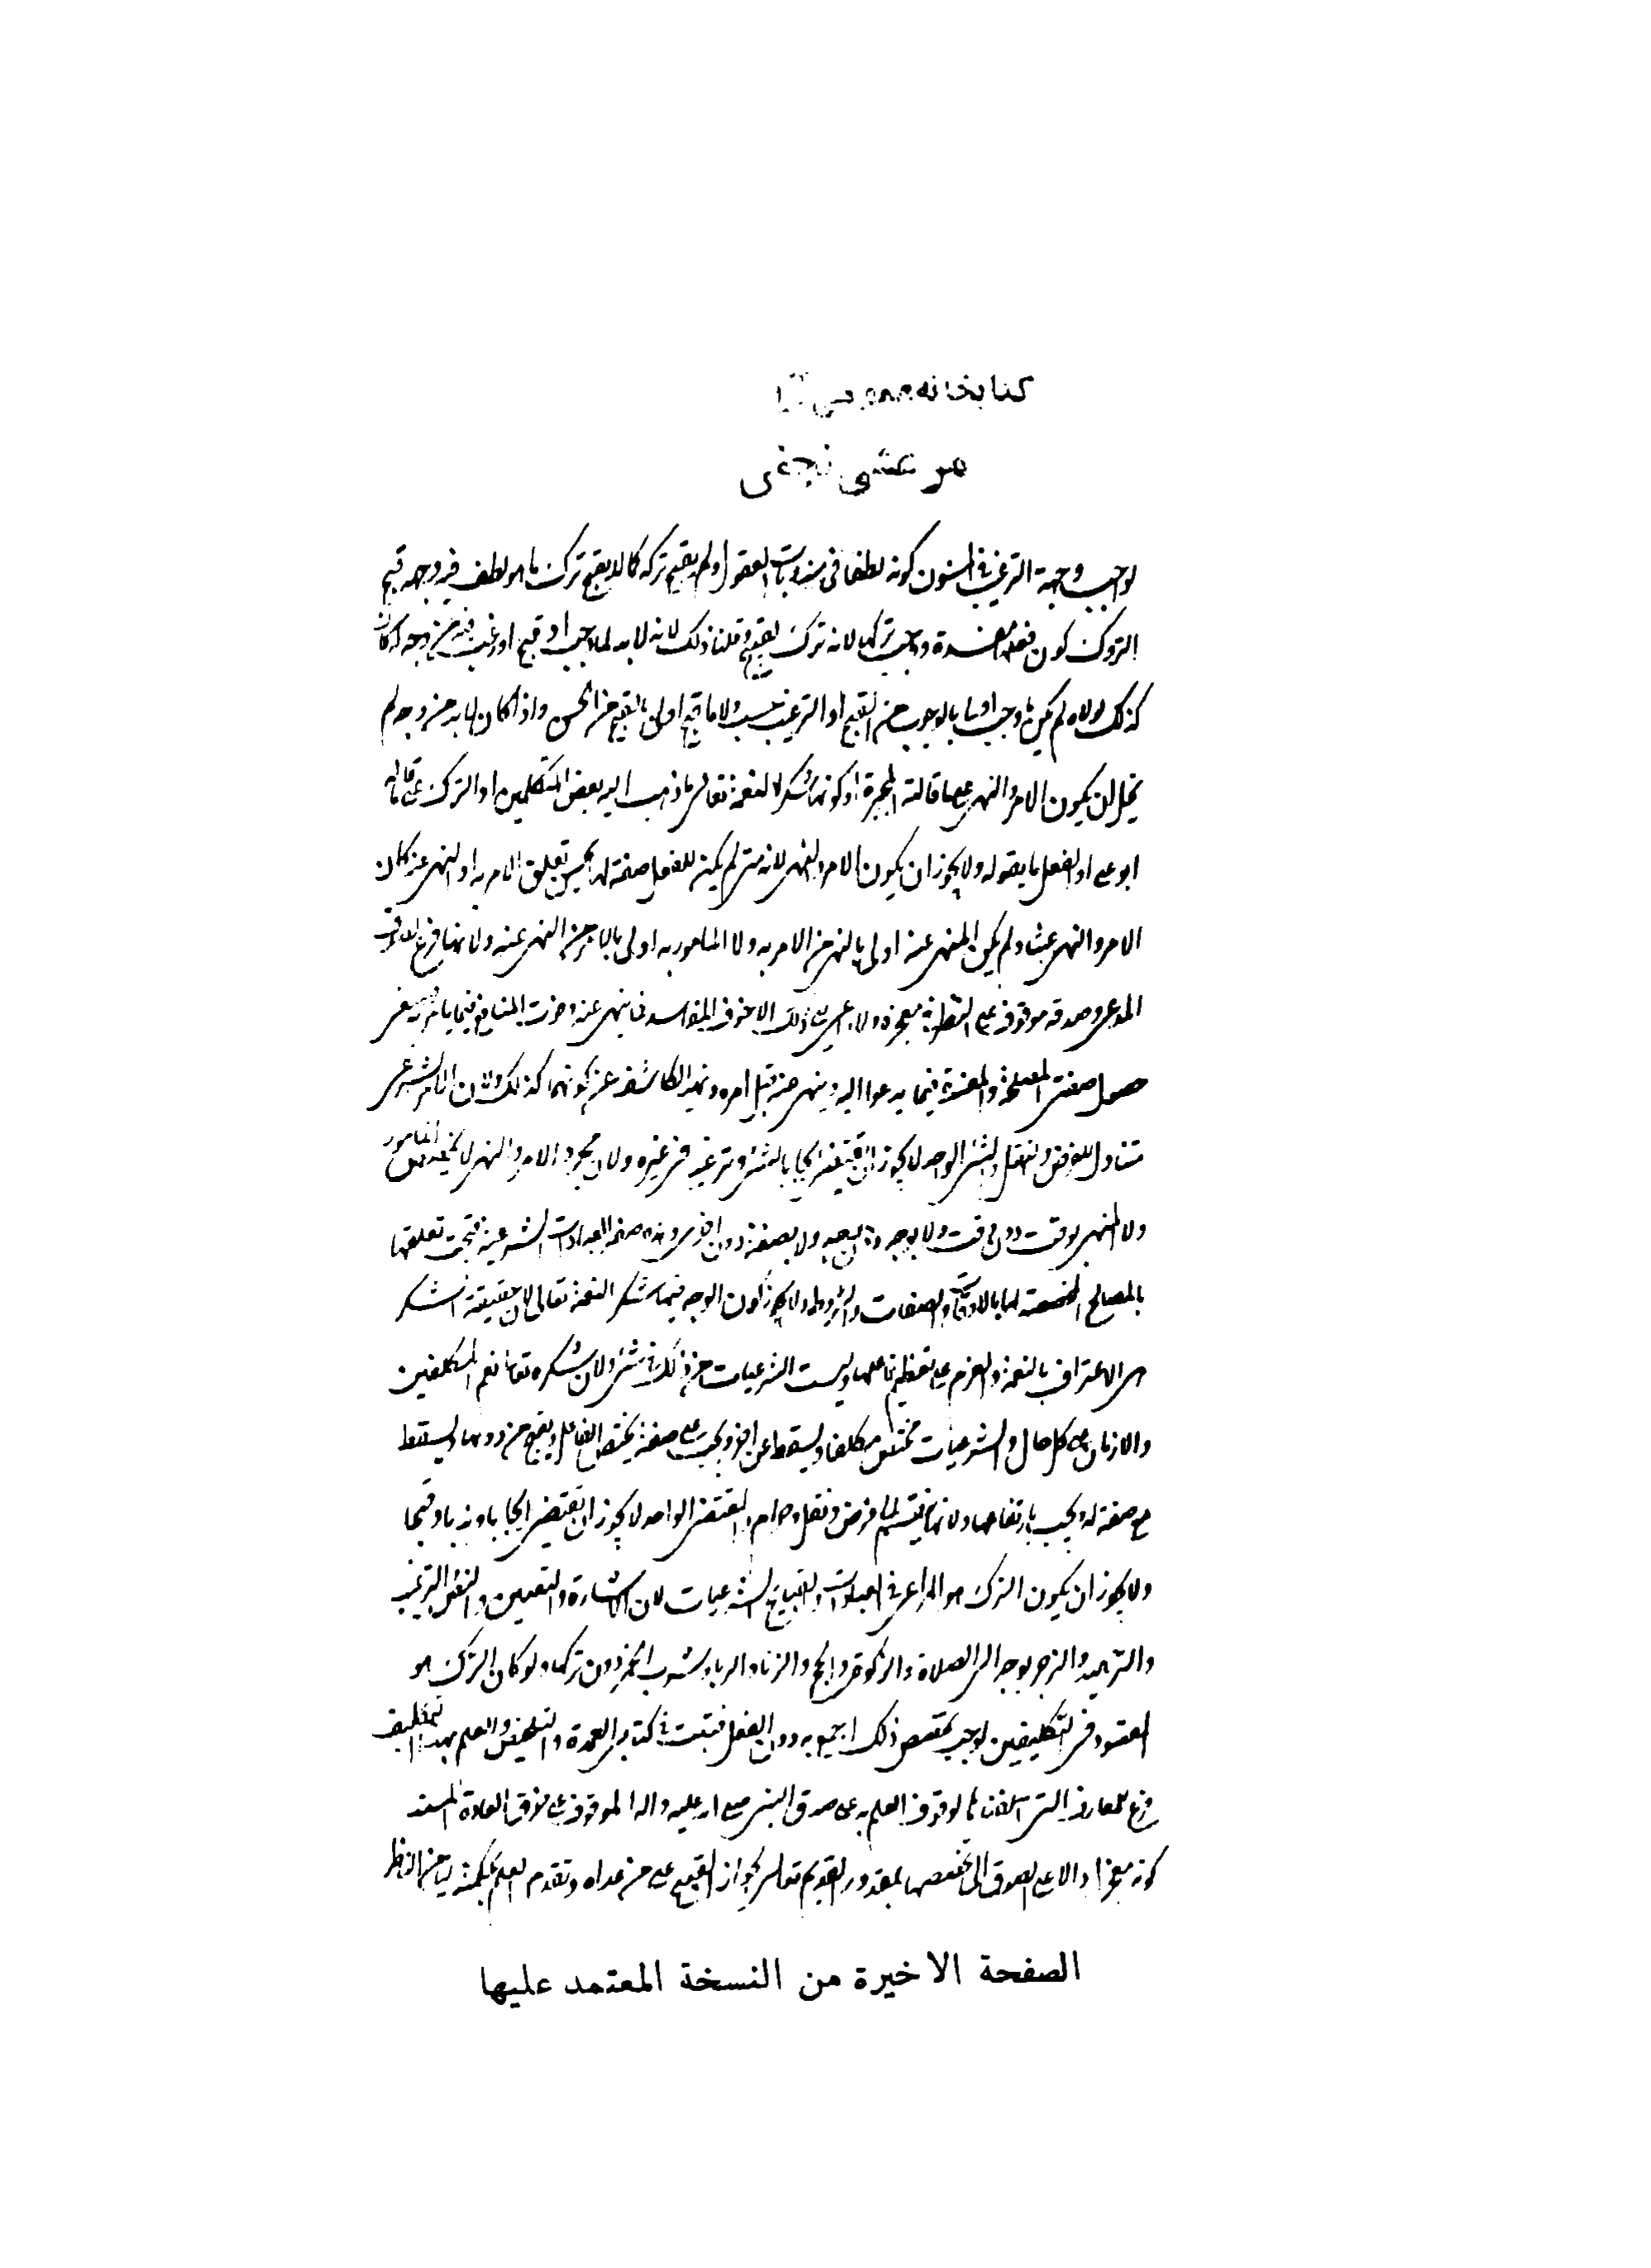 كتابخانه عمومى
مرعشى نجفى
لوجب وجهة الترغيب فى المسنون كونه لطفا فى مندوبات العقول ولم يقبح تركه كما لا يقبح ترك ما هو لطف فيه وجهة قبح
التروك كون فعلها مفسدة ووجب تركها لانه ترك لقبيح وقلنا ذلك لانه لا بد لما وجب او قبح او رغب فيه من وجه له كان
كذلك لولاه لم يكن ما وجب اولى بالوجوب من القبح او الترغيب ولا ما قبح اولى بالقبح من الحسن واذا كان لا بد من وجه لم
يخل ان يكون الامر والنهى على ما قالته المجبرة او كونها شكرا لنعمه تعالى ما ذهب اليه بعض المتكلمين او الترك على ما قاله
ابو على او الفعل ما يقوله ولا يجوز ان يكون الامر والنهى لانه متى لم يكن للفعل صفة لها يحسن تعلق الامر به او النهى عنه كان
الامر والنهى عبثا ولم يكن المنهى عنه اولى بالنهى من الامر به ولا المامور به اولى بالامر من النهى عنه ولانهما فرع
المدعى وصدقه موقوف على النظر فى معجزه ولا داعى الى ذلك الا خوف المفاسد فيما ينهى عنه وفوت المنافع فيما يامر به
حصول صفتى المصلحة والمفسدة فيما يدعوا اليه وينهى عنه قبل امره ونهيه الكاشف عن كونهما كذلك ولان الامر الشرعى
متناول للفرض والنفل والشىء الواحد لا يجوز ان يقتضى ايجابا لشىء وترغيبا فى غيره ولان مجرد الامر والنهى لا يخص المامور
ولا المنهى بوقت دون وقت ولا بوجه دون وجه ولا بصفة دون اخرى وهذه صفة العبادات الشرعية فيجب تعلقها
بالمصالح المختصة لها بالاوقات والصفات والشروط ولا يجوز كون الوجه فيها شكر النعمة تعالى لان حقيقة الشكر
هى الاعتراف بالنعمة والعزم على تعظيم فاعلها وليست الشرعيات من ذلك فى شىء ولان شكره تعالى يعم المكلفين
والازمان على كل حال والشرعيات تختص مكلفا ويسقط عن اخر ويجب على صفة يختص الفاعل ويقبح من دونها ويسقط
مع صفة له ويجب بارتفاعها ولانها تنقسم الى فرض ونفل وحرام والمقتضى الواحد لا يجوز ان يقتضى ايجابا وندبا وقبحا
ولا يجوز ان يكون الترك هو المراعى فى العبادات والقبائح الشرعيات لان الاشارة والتعيين والنص والترغيب
والترهيب والزجر يوجه الى الصلاة والزكوة والحج والزنا والربا وشرب الخمر دون تركها ولو كان الترك هو
المقصود فى التكليفين لوجب تخصص ذلك اجمع به دون الفعل فثبت فى كتابى العمدة والتلخيص والعلم بهذا التكليف
فرع للمعارف التى لوقوف العلم به على صدق النبى صلى الله عليه واله الموقوف على خرق العادة المستند
كونه معجزا دالا على الصدق الى تخصصها بمقدور القديم تعالى لجواز القبيح على من عداه وتقدم العلم بحكمته ليتأمن الناظر
الصفحة الاخيرة من النسخة المعتمد عليها